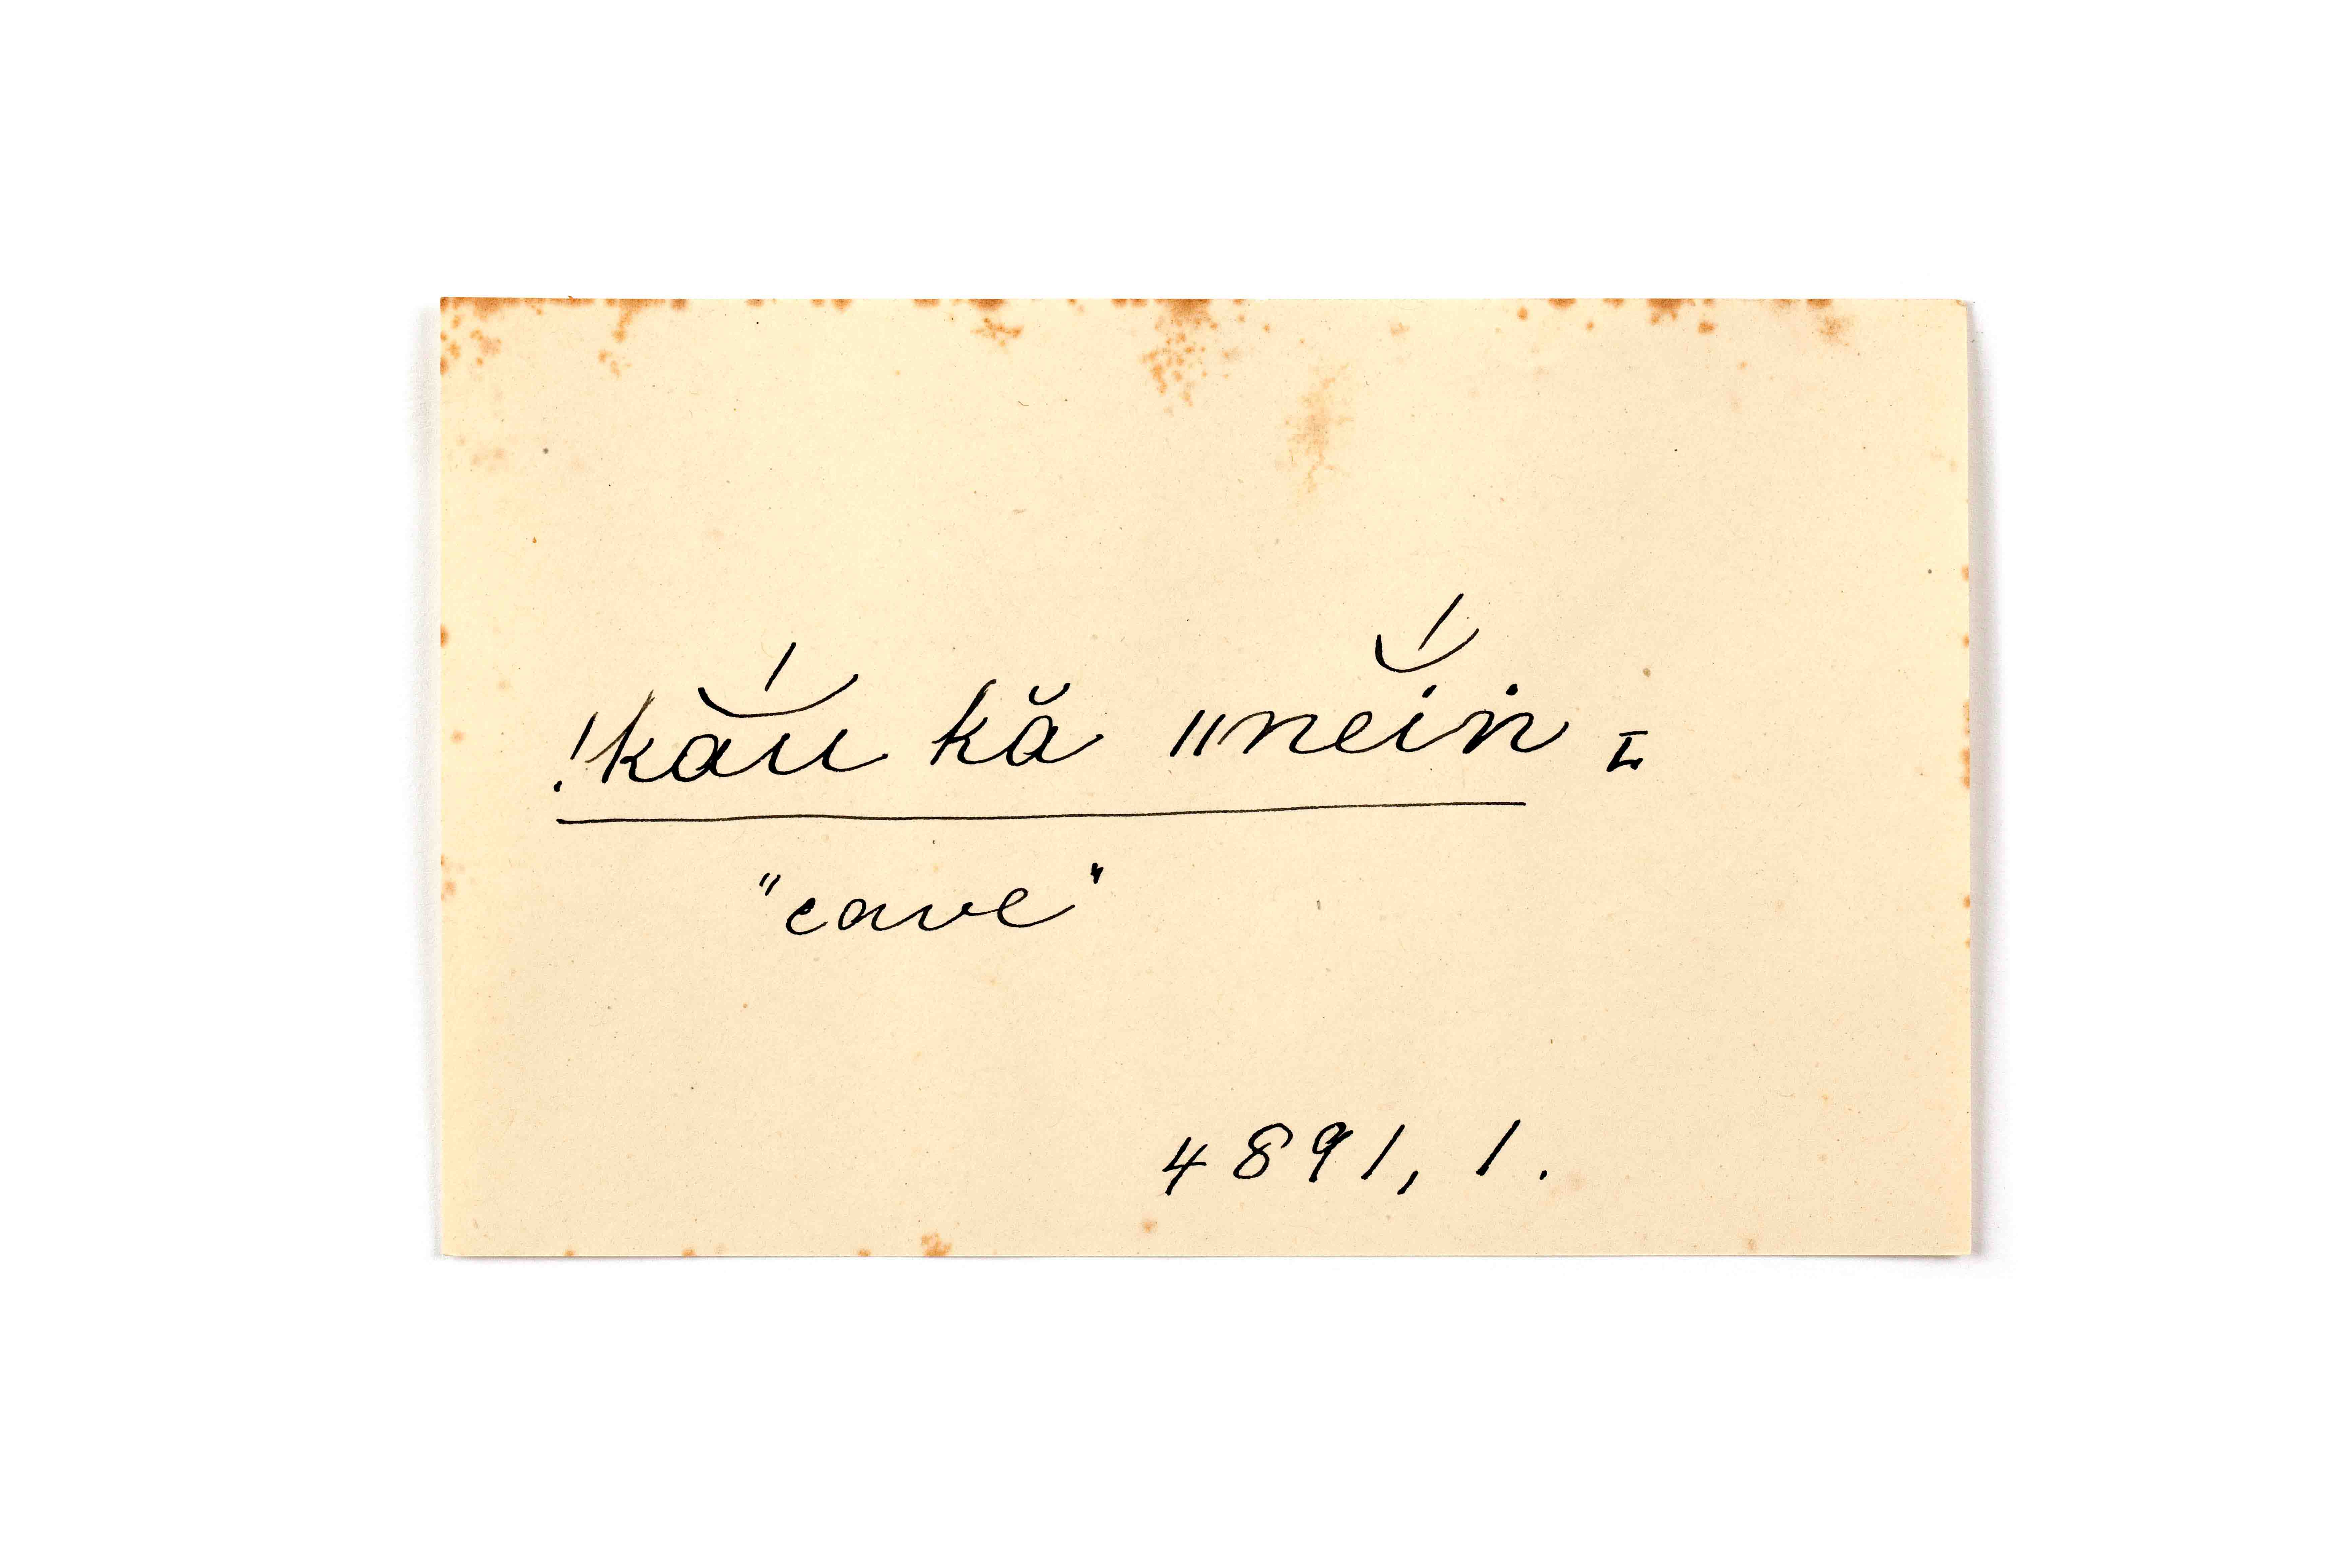 !kắu kă ǁnĕ́iṅ ɪ
"cave"
4891, 1.